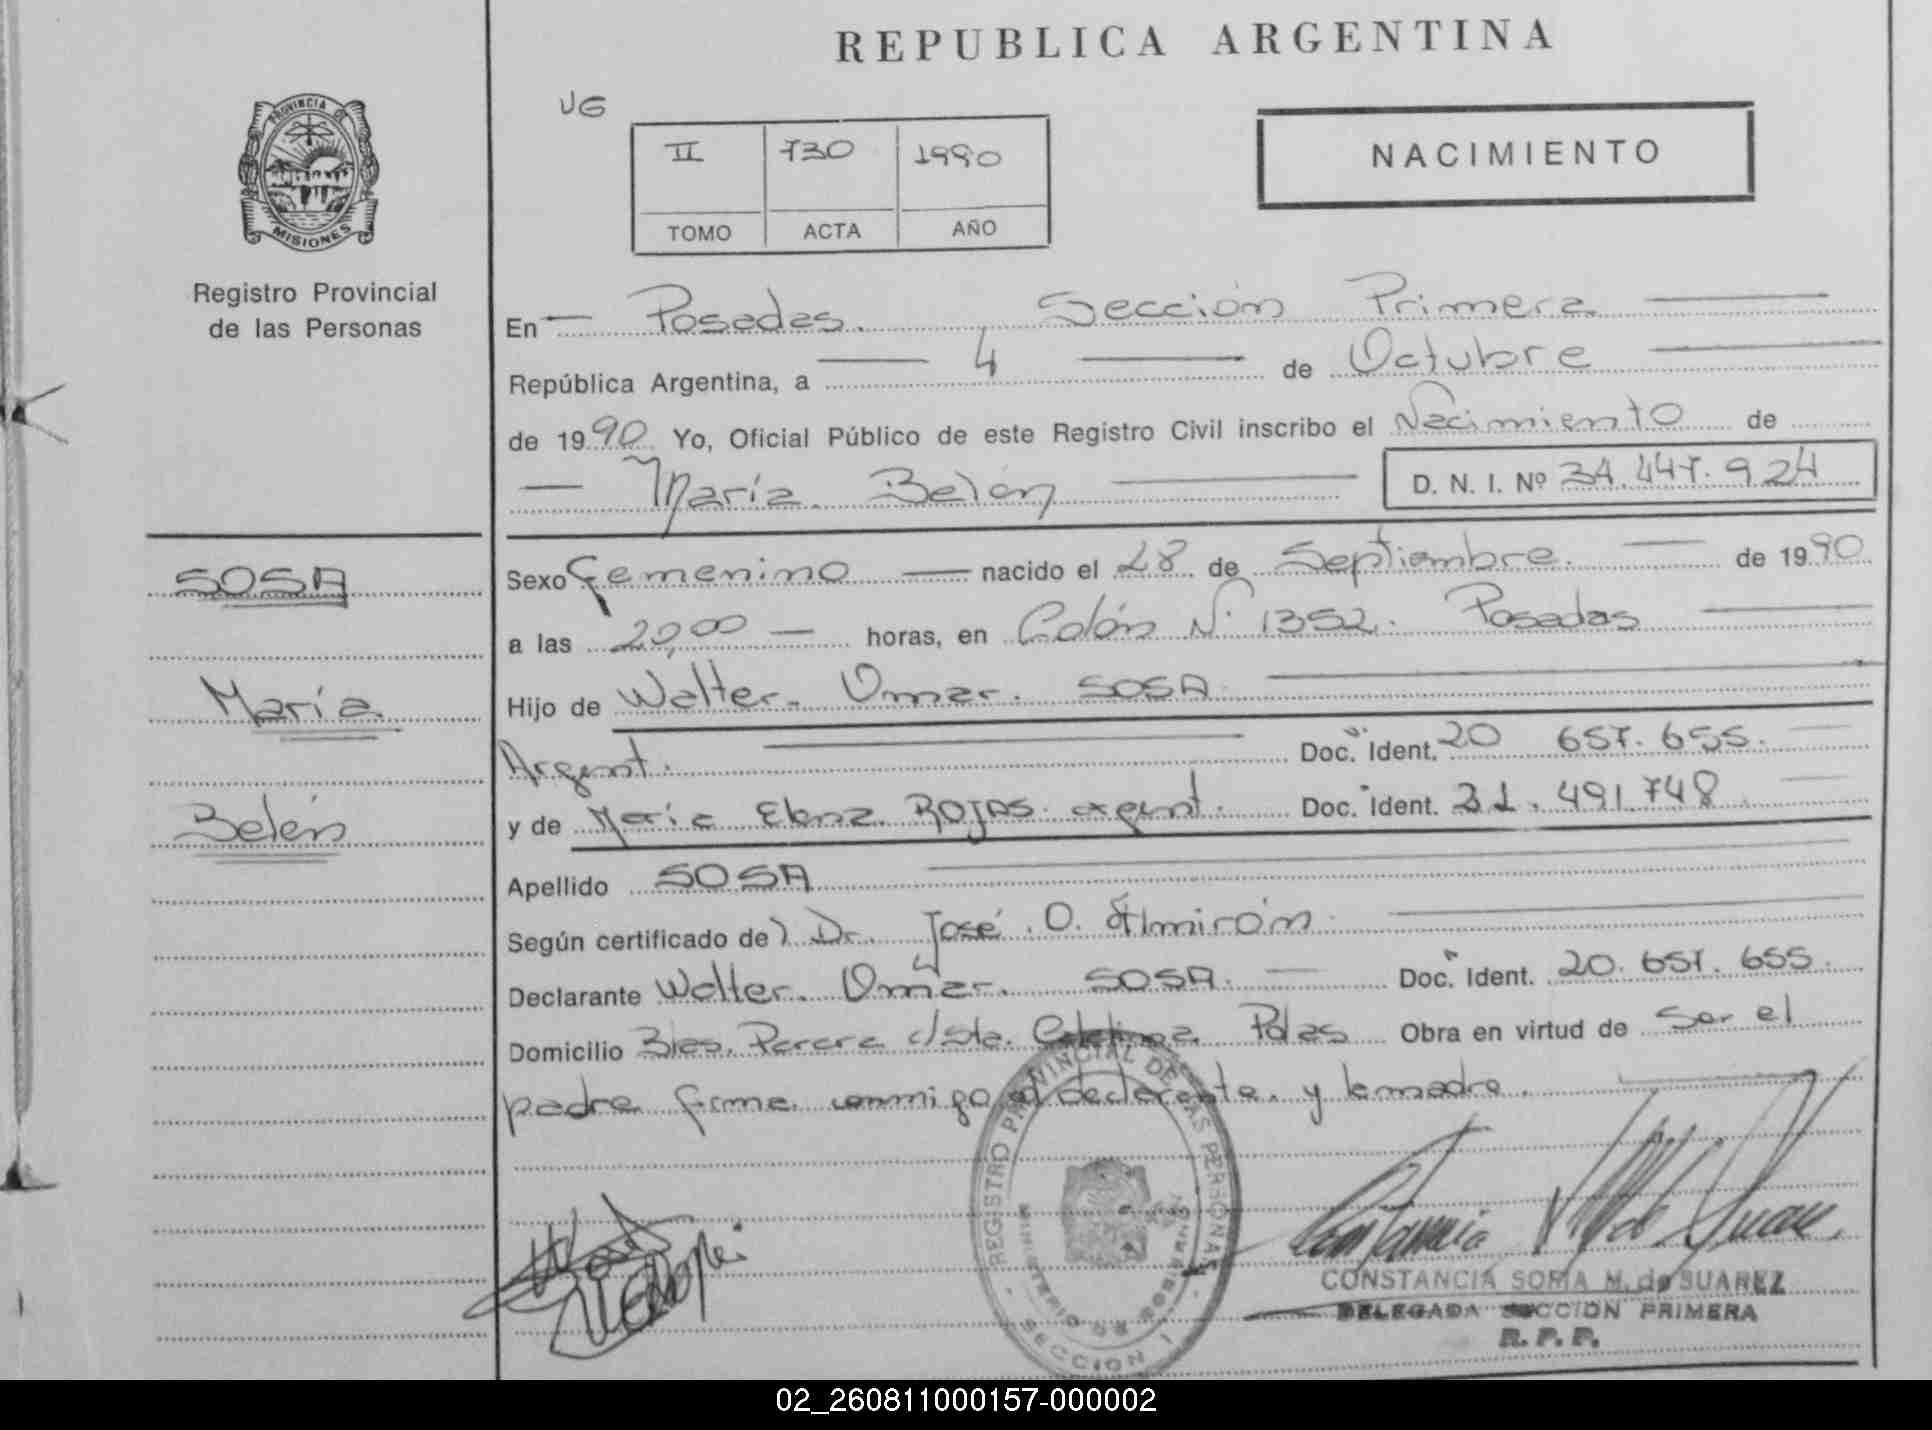 REPUBLICA ARGENTINA
PROVINCIA DE
MISIONES
Registro Provincial
de las Personas
UG
II 730 1990
TOMO ACTA AÑO
NACIMIENTO
En Posadas. Sección Primera
República Argentina, a 4 de Octubre
de 1990 Yo, Oficial Público de este Registro Civil inscribo el Nacimiento de
María Belén D. N. I. Nº 34.447.924
SOSA
María
Belén
Sexo Femenino nacido el 28 de Septiembre. de 1990
a las 20,00 horas, en Colón Nº 1352. Posadas
Hijo de Walter Omar. SOSA
Argent. Doc. Ident. 20 657.655.
y de María Elena ROJAS argent. Doc. Ident. 21.491.748
Apellido SOSA
Según certificado de) Dr. José O. Almirón
Declarante Walter. Omar. SOSA. Doc. Ident. 20.657.655.
Domicilio Bles. Parera c/Sta. Catalina Pdas Obra en virtud de ser el
padre firma conmigo el declarante y la madre.
REGISTRO PROVINCIAL DE LAS PERSONAS
MINISTERIO DE GOBIERNO
SECCION 1
CONSTANCIA SORIA M. de SUAREZ
DELEGADA SECCION PRIMERA
R. P. P.
02_260811000157-000002